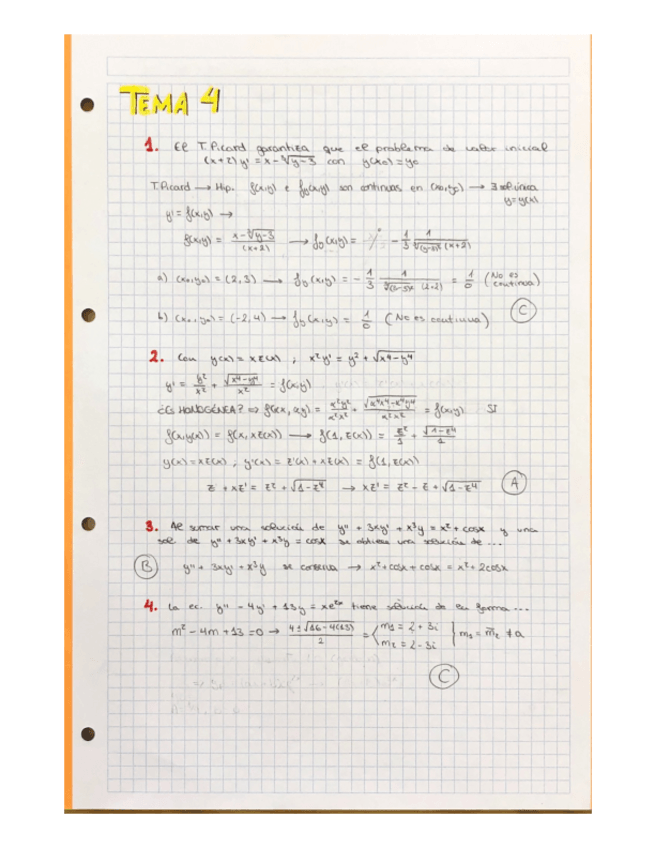 TEMA 4
1. El T. Picard garantiza que el problema de valor inicial
(x+2) y' = x - ∛(y-3) con y(x₀) = y₀
T. Picard → Hip. f(x,y) e f_y(x,y) son continuas en (x₀,y₀) → ∃ sol única
y = y(x)
y' = f(x,y) →
f(x,y) = (x - ∛(y-3))/(x+2) → f_y(x,y) = - 1/3 1/(∛(y-3)² (x+2))
a) (x₀,y₀) = (2,3) → f_y(x,y) = - 1/3 1/(∛(3-3)² (2+2)) = 1/0 (No es continua)
b) (x₀,y₀) = (-2,4) → f_y(x,y) = 1/0 (No es continua) C
2. Con y(x) = x z(x) ; x²y' = y² + √(x⁴-y⁴)
y' = y²/x² + √(x⁴-y⁴)/x² = f(x,y)
¿ES HOMOGÉNEA? ⇒ f(αx, αy) = α²y²/α²x² + √(α⁴x⁴-α⁴y⁴)/α²x² = f(x,y) SI
f(x,y(x)) = f(x, xz(x)) → f(1, z(x)) = z²/1 + √(1-z⁴)/1
y(x) = xz(x) , y'(x) = z'(x) + xz(x) = f(1, z(x))
z + xz' = z² + √(1-z⁴) → xz' = z² - z + √(1-z⁴) A
3. Al sumar una solución de y'' + 3xy' + x³y = x² + cosx y una
sol de y'' + 3xy' + x³y = cosx se obtiene una solución de ...
B y'' + 3xy' + x³y se conserva → x² + cosx + cosx = x² + 2cosx
4. La ec. y'' - 4y' + 13y = xe²ˣ tiene solución de la forma ...
m² - 4m + 13 = 0 → (4 ± √(16 - 4(13)))/2 = { m₁ = 2 + 3i
m₂ = 2 - 3i } m₁ = m̄₂ ≠ a
C